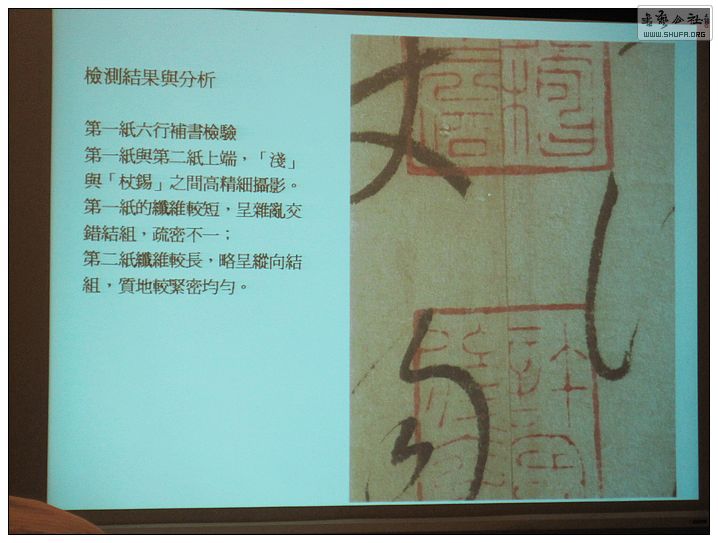 檢測結果與分析
第一紙六行補書檢驗
第一紙與第二紙上端，「淺」
與「杖錫」之間高精細攝影。
第一紙的纖維較短，呈雜亂交
錯結組，疏密不一；
第二紙纖維較長，略呈縱向結
組，質地較緊密均勻。
WWW.SHUFA.ORG